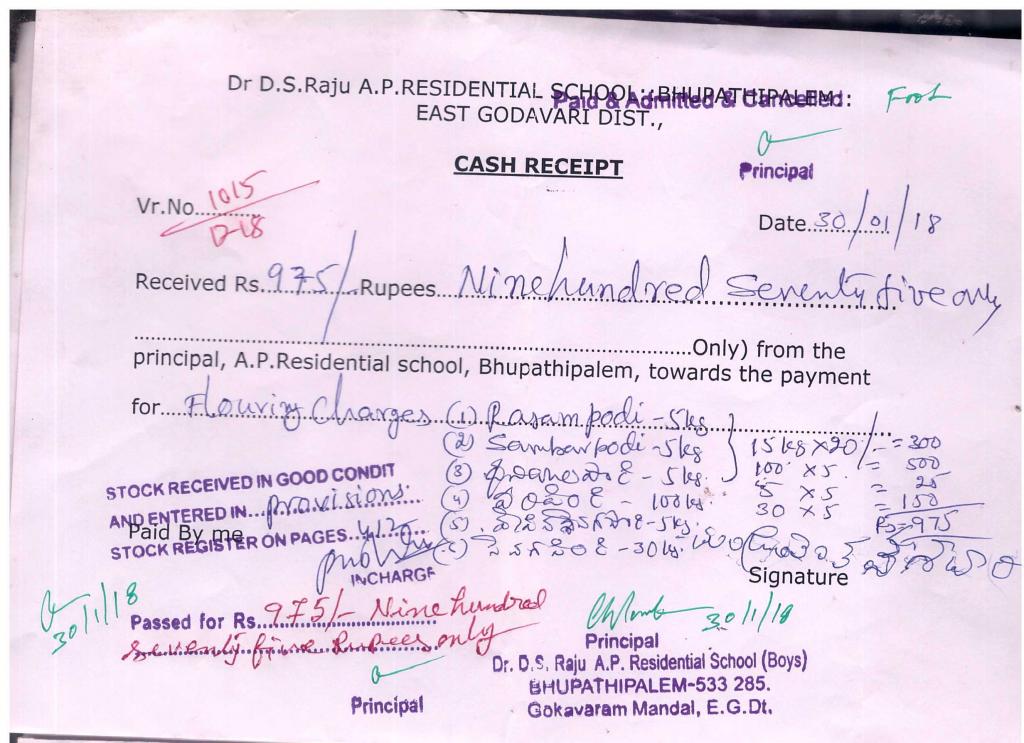 Dr D.S.Raju A.P.RESIDENTIAL SCHOOL::BHUPATHIPALEM::
Paid & Admitted & Cancelled
EAST GODAVARI DIST.,
Principal
CASH RECEIPT
Vr.No. 1015
D-18
Date. 30/01/18
Received Rs. 975/- Rupees Nine hundred Seventy five only
Only) from the
principal, A.P.Residential school, Bhupathipalem, towards the payment
for Flouring Charges (1) Rasam podi - 5kg
(2) Sambar podi - 5kg } 15 kg x 20/- = 300
(3) - 5kg. 100 x 5 = 500
(4) - 100kg. 5 x 5 = 25
30 x 5 = 150
(5) - 5kg. Rs=975
- 30kg.
STOCK RECEIVED IN GOOD CONDIT
AND ENTERED IN provisions
Paid By me
STOCK REGISTER ON PAGES
INCHARGE
Signature
30/1/18
Passed for Rs. 975/- Nine hundred
Seventy five Rupees only
Principal
30/1/18
Principal
Dr. D.S. Raju A.P. Residential School (Boys)
BHUPATHIPALEM-533 285.
Gokavaram Mandal, E.G.Dt.